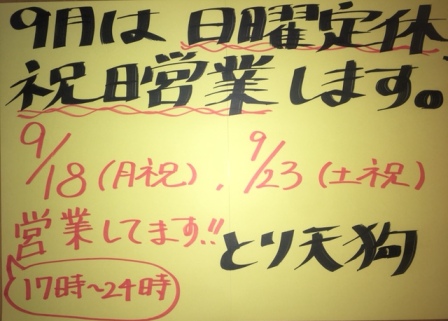 9月は 日曜定休
祝日営業します。
9/18(月祝)、9/23(土祝)
営業してます!!
とり天狗
17時〜24時